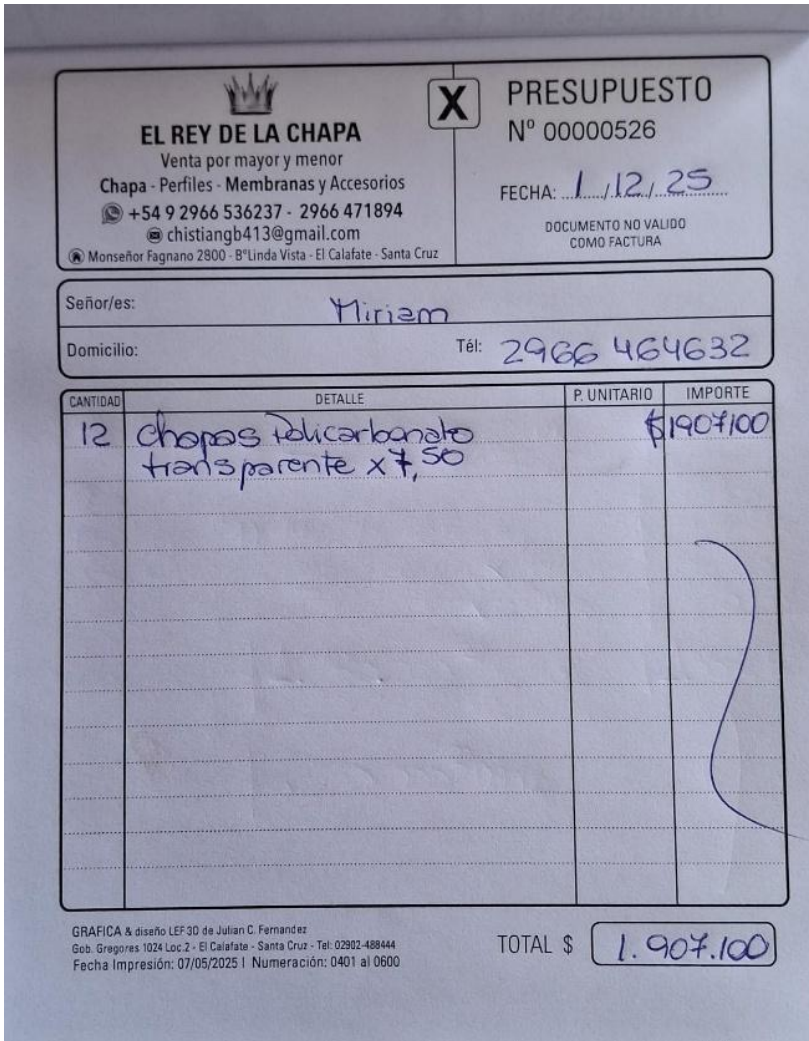 EL REY DE LA CHAPA
Venta por mayor y menor
Chapa - Perfiles - Membranas y Accesorios
+54 9 2966 536237 - 2966 471894
chistiangb413@gmail.com
Monseñor Fagnano 2800 - B°Linda Vista - El Calafate - Santa Cruz
X
PRESUPUESTO
Nº 00000526
FECHA: 1/12/25
DOCUMENTO NO VALIDO
COMO FACTURA
Señor/es: Miriam
Domicilio: Tél: 2966 464632
CANTIDAD DETALLE P. UNITARIO IMPORTE
12 Chapas Policarbonato $1907100
transparente x 7,50
GRAFICA & diseño LEF 3D de Julian C. Fernandez
Gob. Gregores 1024 Loc.2 - El Calafate - Santa Cruz - Tel: 02902-488444
Fecha Impresión: 07/05/2025 | Numeración: 0401 al 0600
TOTAL $ 1.907.100